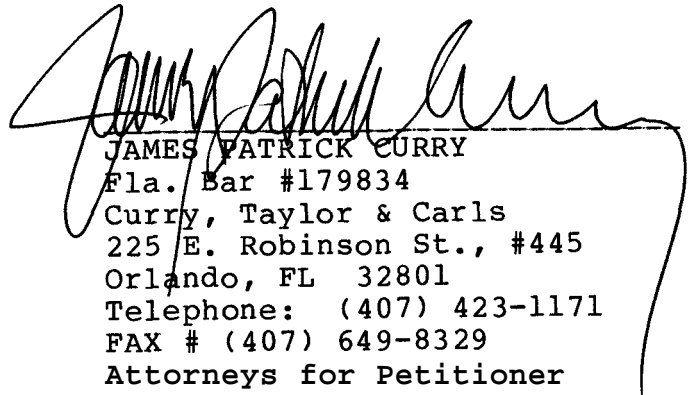 James Patrick Curry
JAMES PATRICK CURRY
Fla. Bar #179834
Curry, Taylor & Carls
225 E. Robinson St., #445
Orlando, FL  32801
Telephone:  (407) 423-1171
FAX # (407) 649-8329
Attorneys for Petitioner